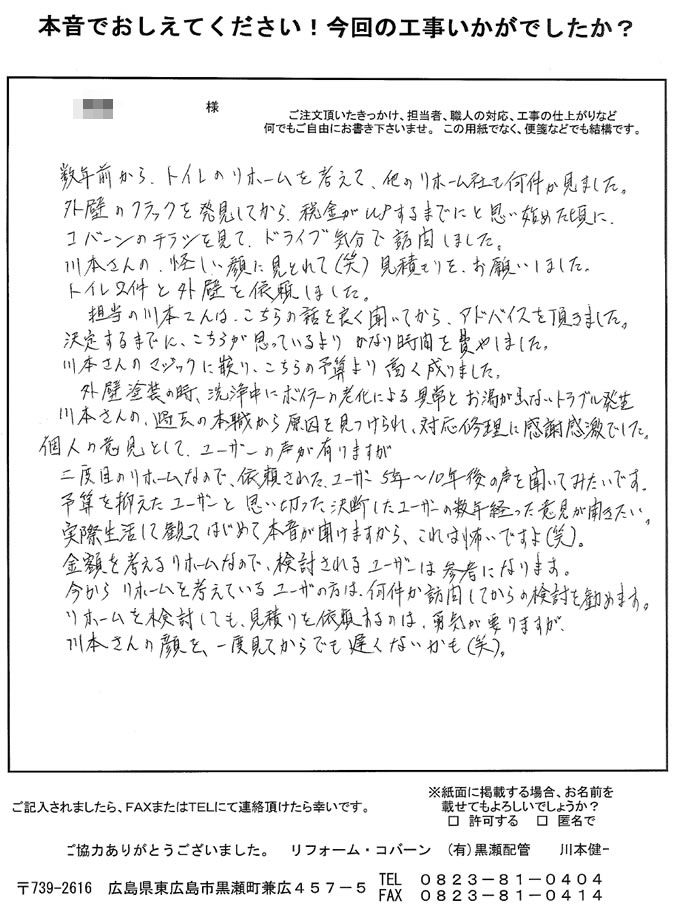 本音でおしえてください！今回の工事いかがでしたか？
様
ご注文頂いたきっかけ、担当者、職人の対応、工事の仕上がりなど
何でもご自由にお書き下さいませ。この用紙でなく、便箋などでも結構です。
数年前から、トイレのリホームを考えて、他のリホーム社も何件か見ました。
外壁のクラックを発見してから、税金がUPするまでにと思い始めた頃に、
コバーンのチラシを見て、ドライブ気分で訪問しました。
川本さんの、怪しい顔に見とれて(笑)見積もりを、お願いしました。
トイレ2件と外壁を依頼しました。
担当の川本さんは、こちらの話を良く聞いてから、アドバイスを頂きました。
決定するまでに、こちらが思っているよりかなり時間を費やしました。
川本さんのマジックに嵌り、こちらの予算より高く成りました。
外壁塗装の時、洗浄中にボイラーの老化による異常とお湯が出ないトラブル発生
川本さんの、過去の本職から原因を見つけられ、対応修理に感謝感激でした。
個人の意見として、ユーザーの声が有りますが
二度目のリホームなので、依頼された、ユーザー5年〜10年後の声を聞いてみたいです。
予算を抑えたユーザーと思い切った決断したユーザーの数年経った意見が聞きたい。
実際生活して観てはじめて本音が聞けますから、これは怖いですよ(笑)。
金額を考えるリホームなので、検討されるユーザーは参考になります。
今からリホームを考えているユーザの方は、何件か訪問してからの検討を勧めます。
リホームを検討しても、見積りを依頼するのは、勇気が要りますが、
川本さんの顔を、一度見てからでも遅くないかも(笑)。
ご記入されましたら、FAXまたはTELにて連絡頂けたら幸いです。
※紙面に掲載する場合、お名前を
載せてもよろしいでしょうか？
□ 許可する □ 匿名で
ご協力ありがとうございました。 リフォーム・コバーン (有)黒瀬配管 川本健一
〒739-2616 広島県東広島市黒瀬町兼広４５７－５
TEL ０８２３－８１－０４０４
FAX ０８２３－８１－０４１４